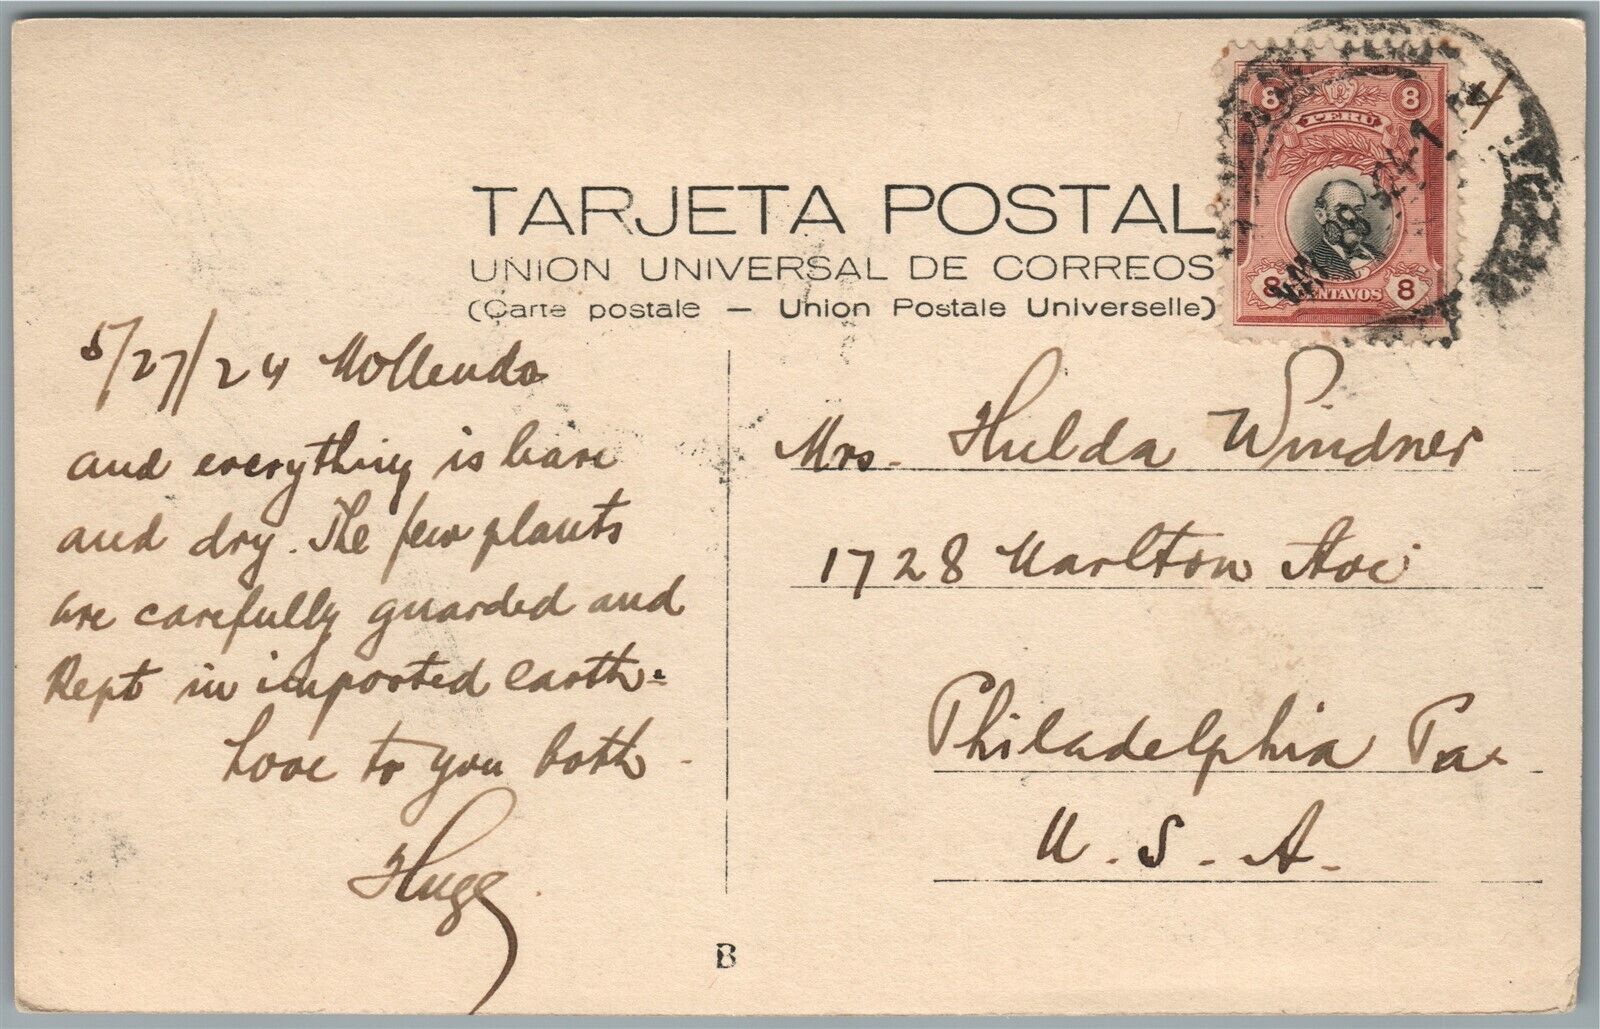 TARJETA POSTAL
UNION UNIVERSAL DE CORREOS
(Carte postale — Union Postale Universelle)
8 8
PERU
8 CENTAVOS 8
5/27/24 Mollendo
and everything is bare
and dry. The few plants
are carefully guarded and
Kept in imported earth.
Love to you both.
Hugo.
Mrs. Hulda Windner
1728 Marlton Ave
Philadelphia Pa.
U. S. A.
B